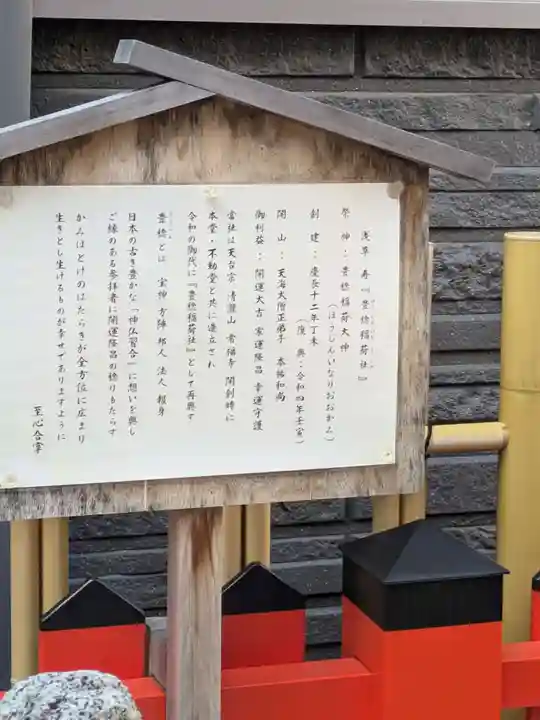 浅草 寿『豊穂稲荷社』
祭 神 : 豊穂稲荷大神
(ほうしんいなりおおかみ)
創 建 : 慶長十二年丁未
(復 興:令和四年壬寅)
開 山 : 天海大僧正弟子 奉祐和尚
御利益 : 開運大吉 家運隆昌 幸運守護
當社は天台宗 清瀧山 者福寺 開創時に
本堂・不動堂と共に建立され
令和の御代に『豊穂稲荷社』として再興す
豊穂とは 宝神 方陣 邦人 法人 報身
日本の古き豊かな『神仏習合』に想いを興し
ご縁のある参拝者に開運隆昌の穂りもたらす
かみほとけのはたらきが全方位に広まり
生きとし生けるものが幸せでありますように
至心合掌